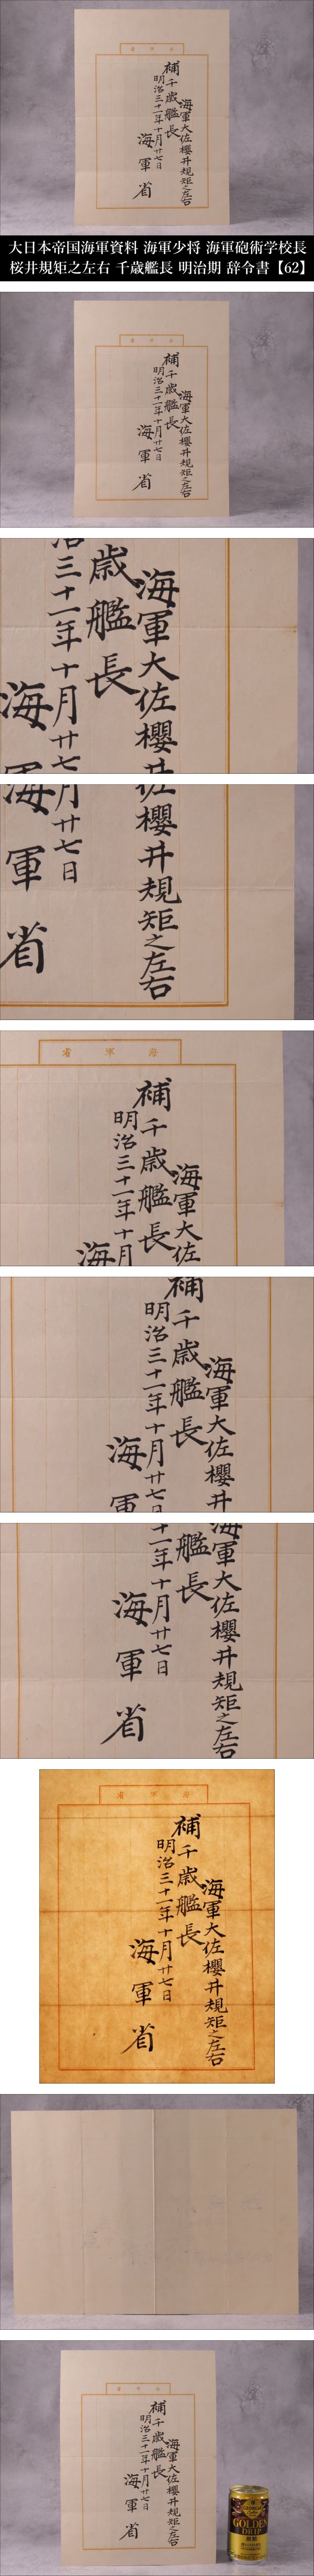 海軍省
海軍大佐櫻井規矩之左右
補千歳艦長
明治三十一年十月廿七日
海軍省
大日本帝国海軍資料 海軍少将 海軍砲術学校長
桜井規矩之左右 千歳艦長 明治期 辞令書【62】
海軍省
海軍大佐櫻井規矩之左右
補千歳艦長
明治三十一年十月廿七日
海軍省
海軍大佐櫻井
歳艦長
治三十一年十月廿七
海
佐櫻井規矩之左右
月廿七日
海軍省
海軍省
海軍大佐
補千歳艦長
明治三十一年十月
海
海軍大佐櫻井
補千歳艦長
明治三十一年十月廿七
海軍
海軍大佐櫻井規矩之左右
艦長
十一年十月廿七日
海軍省
海軍省
海軍大佐櫻井規矩之左右
補千歳艦長
明治三十一年十月廿七日
海軍省
海軍省
海軍大佐櫻井規矩之左右
補千歳艦長
明治三十一年十月廿七日
海軍省
GOLDEN
DRIP